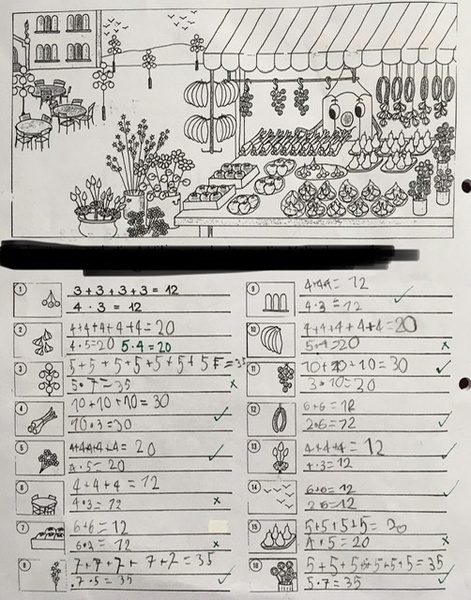 1
3 + 3 + 3 + 3 = 12
4 · 3 = 12
2
4+4+4+4+4=20
4·5=20 5·4=20
3
5+5+5+5+5+5+5=35
5·7=35 x
4
10+10+10=30
10·3=30 ✓
5
4+4+4+4+4=20
4·5=20 ✓
6
4+4+4=12
4·3=12 x
7
6+6=12
6·3=12 x
8
7+7+7+7+7=35
7·5=35 ✓
9
4+4+4=12
4·3=12 ✓
10
4+4+4+4+4=20
5·4=20 x
11
10+10+10=30 ✓
3·10=30
12
6+6=12
2·6=12 ✓
13
4+4+4=12
4·3=12 ✓
14
6+6=12
2·6=12 ✓
15
5+5+5+5=20
4·5=20 x
16
5+5+5+5+5+5+5=35
5·7=35 ✓